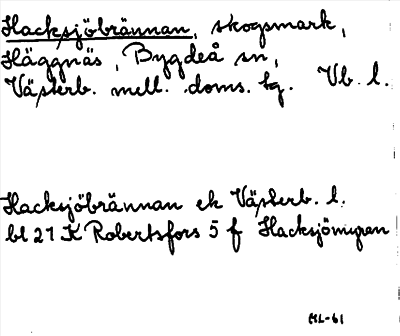 Hacksjöbrännan, skogsmark,
Häggnäs, Bygdeå sn,
Västerb. mell. doms. tg. Vb. l.
Hacksjöbrännan ek Västerb. l.
bl 21 K Robertsfors 5 f Hacksjömyren
KL-61